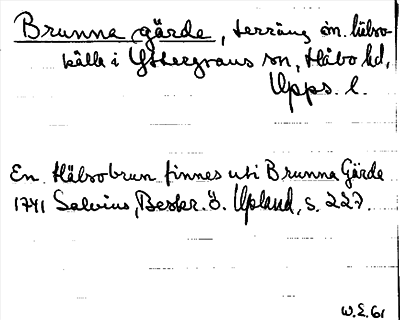 Brunna gärde, terräng o. hälso-
källa i Yttergrans sn, Håbo hd,
Upps. l.
En Hälsobrun finnes uti Brunna Gärde
1741 Salvius, Beskr. ö. Upland, s. 227.
W.E. 61